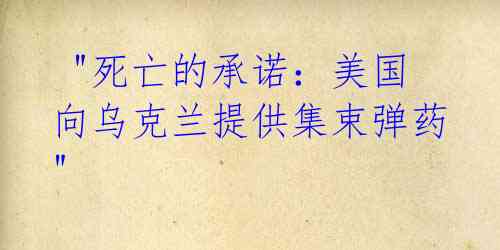 "死亡的承诺：美国
向乌克兰提供集束弹药
"